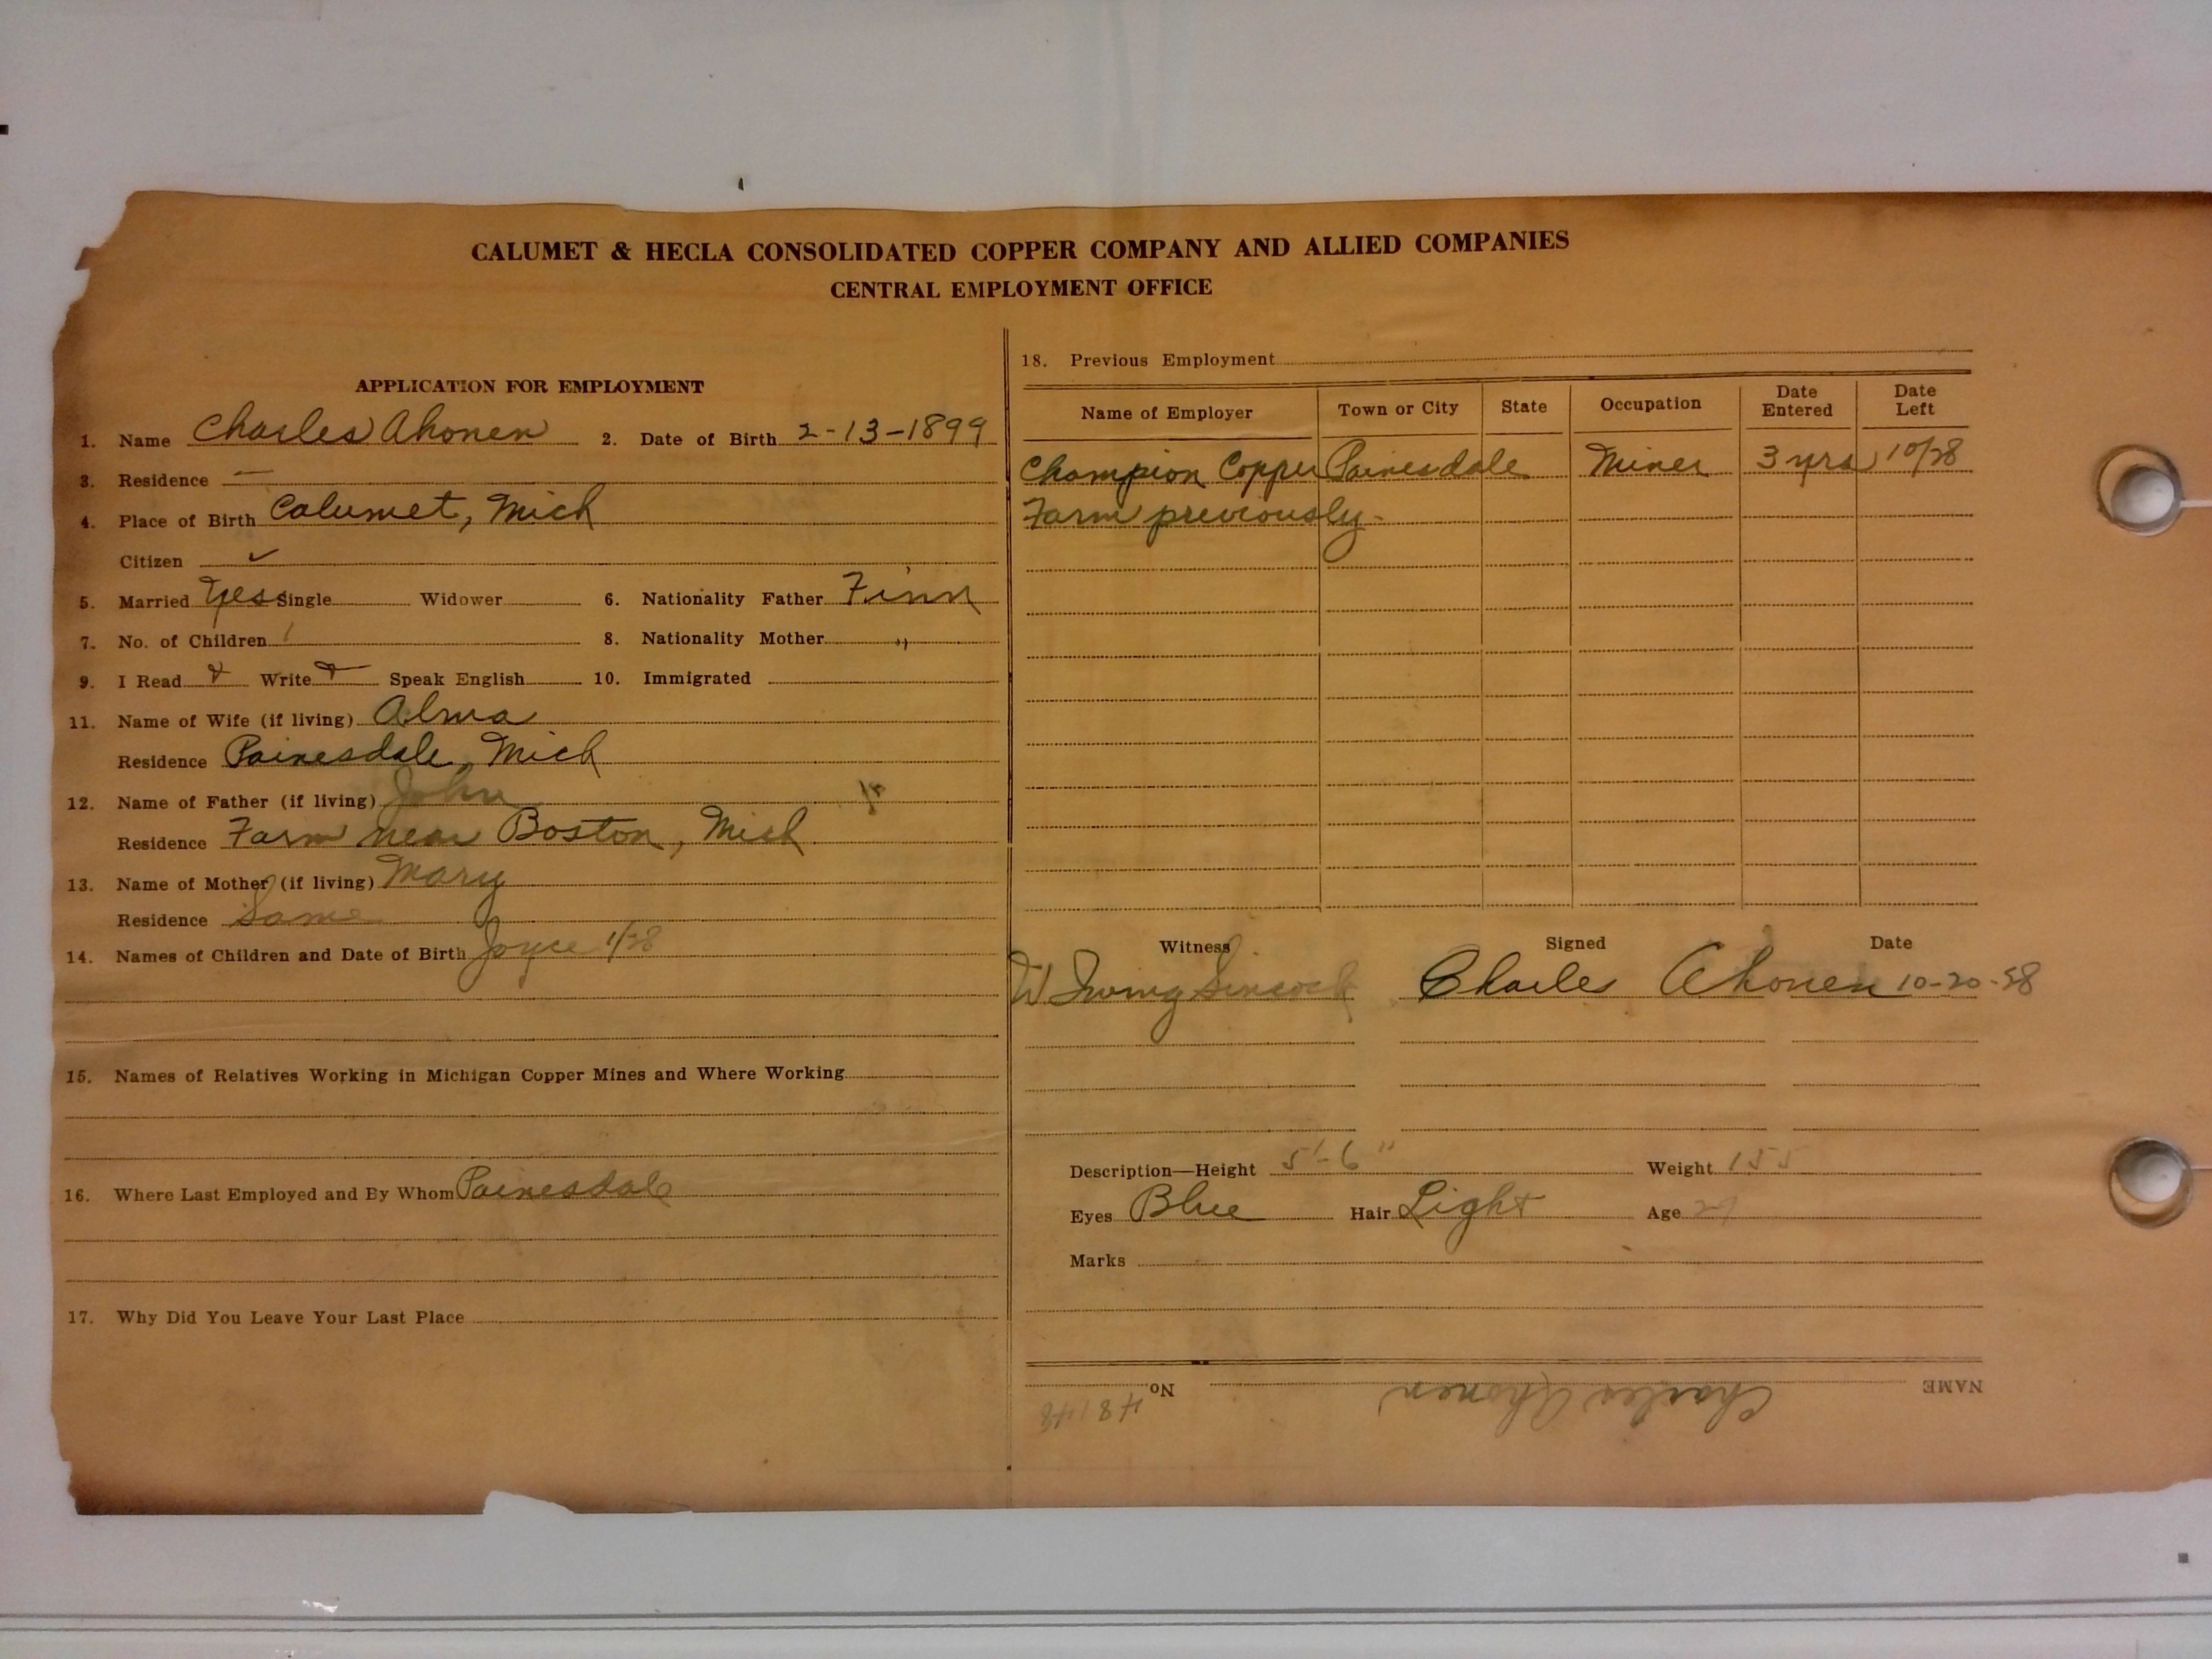 CALUMET & HECLA CONSOLIDATED COPPER COMPANY AND ALLIED COMPANIES
CENTRAL EMPLOYMENT OFFICE
APPLICATION FOR EMPLOYMENT
1. Name Charles Ahonen 2. Date of Birth 2-13-1899
3. Residence —
4. Place of Birth Calumet, Mich
Citizen ✓
5. Married Yes Single Widower 6. Nationality Father Finn
7. No. of Children 1 8. Nationality Mother "
9. I Read Write Speak English 10. Immigrated
11. Name of Wife (if living) Alma
Residence Painesdale, Mich
12. Name of Father (if living) John
Residence Farm near Boston, Mich
13. Name of Mother (if living) Mary
Residence Same
14. Names of Children and Date of Birth Joyce 1/28
15. Names of Relatives Working in Michigan Copper Mines and Where Working
16. Where Last Employed and By Whom Painesdale
17. Why Did You Leave Your Last Place
18. Previous Employment
Name of Employer Town or City State Occupation Date Entered Date Left
Champion Copper Painesdale Miner 3 yrs 10/28
Farm previously-
Witness Signed Date
W Irving Sincock Charles Ahonen 10-20-28
Description—Height 5'-6" Weight 155
Eyes Blue Hair Light Age 29
Marks
NAME Charles Ahonen No. 48148